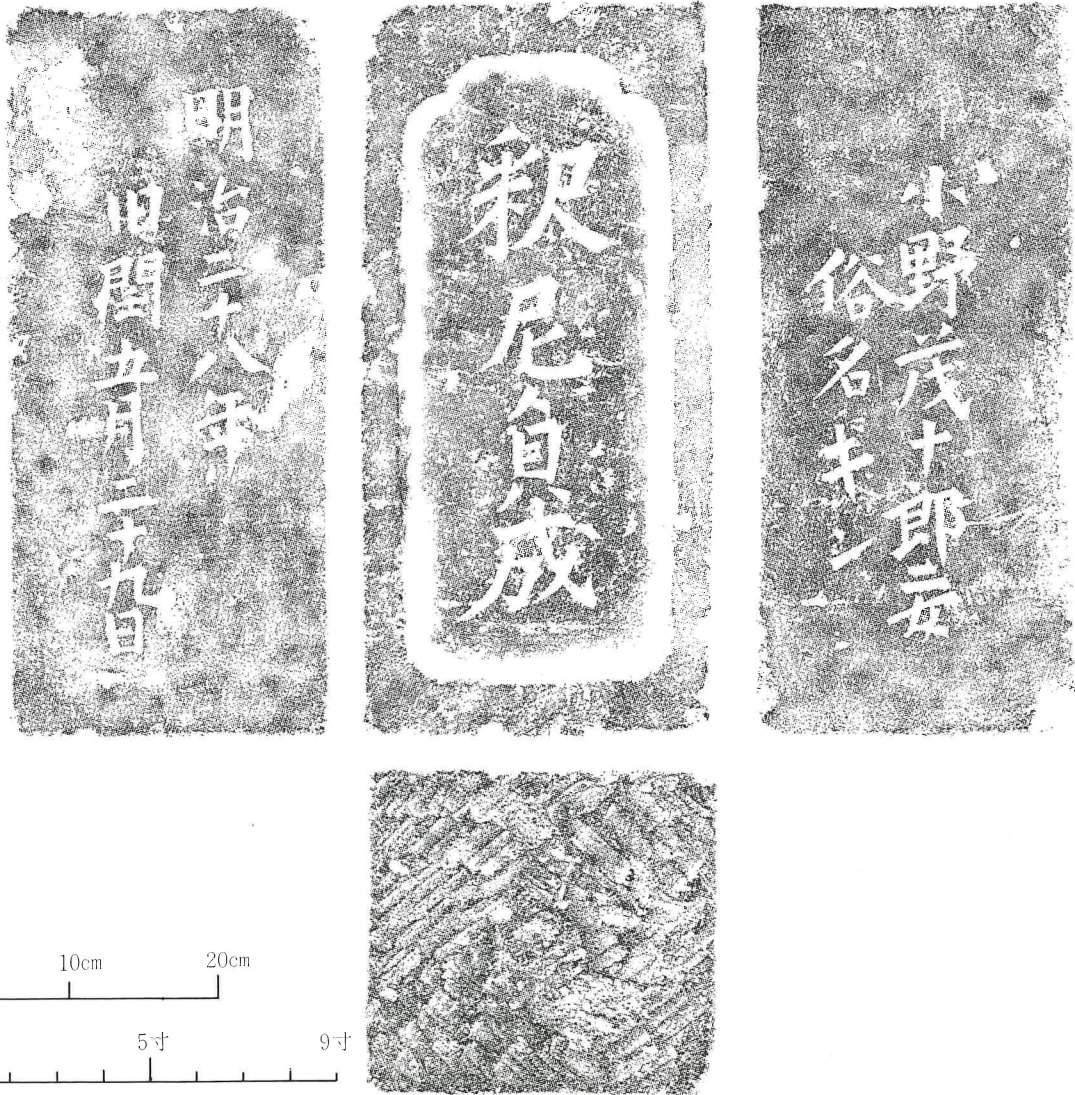 小野茂十郎二女
俗名キン
釈尼自成
明治二十八年
旧閏五月二十九日
10cm
20cm
5寸
9寸